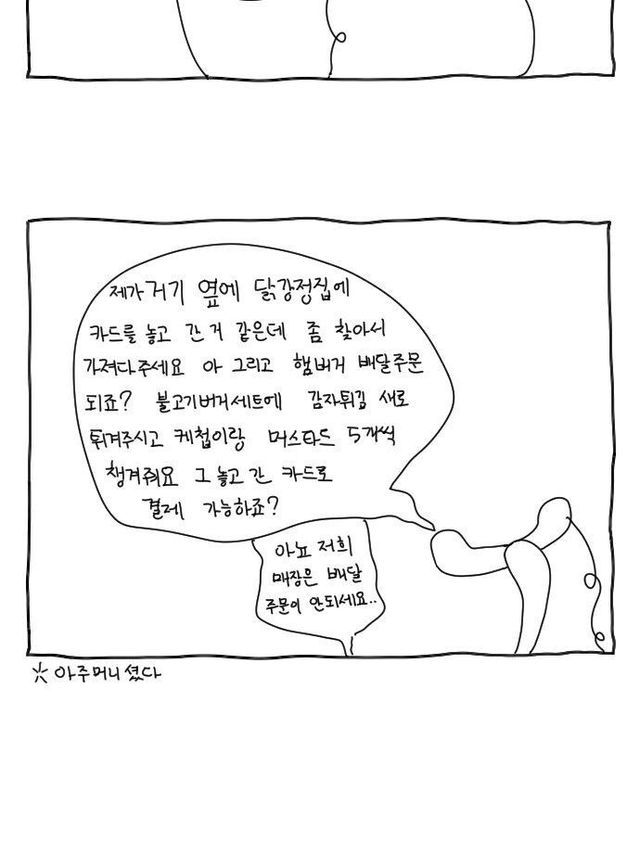 제가 거기 옆에 닭강정집에
카드를 놓고 간 거 같은데 좀 찾아서
가져다주세요 아 그리고 햄버거 배달주문
되죠? 불고기버거세트에 감자튀김 새로
튀겨주시고 케첩이랑 머스타드 5개씩
챙겨줘요 그 놓고 간 카드로
결제 가능하죠?
아뇨 저희
매장은 배달
주문이 안되세요..
※ 아주머니셨다